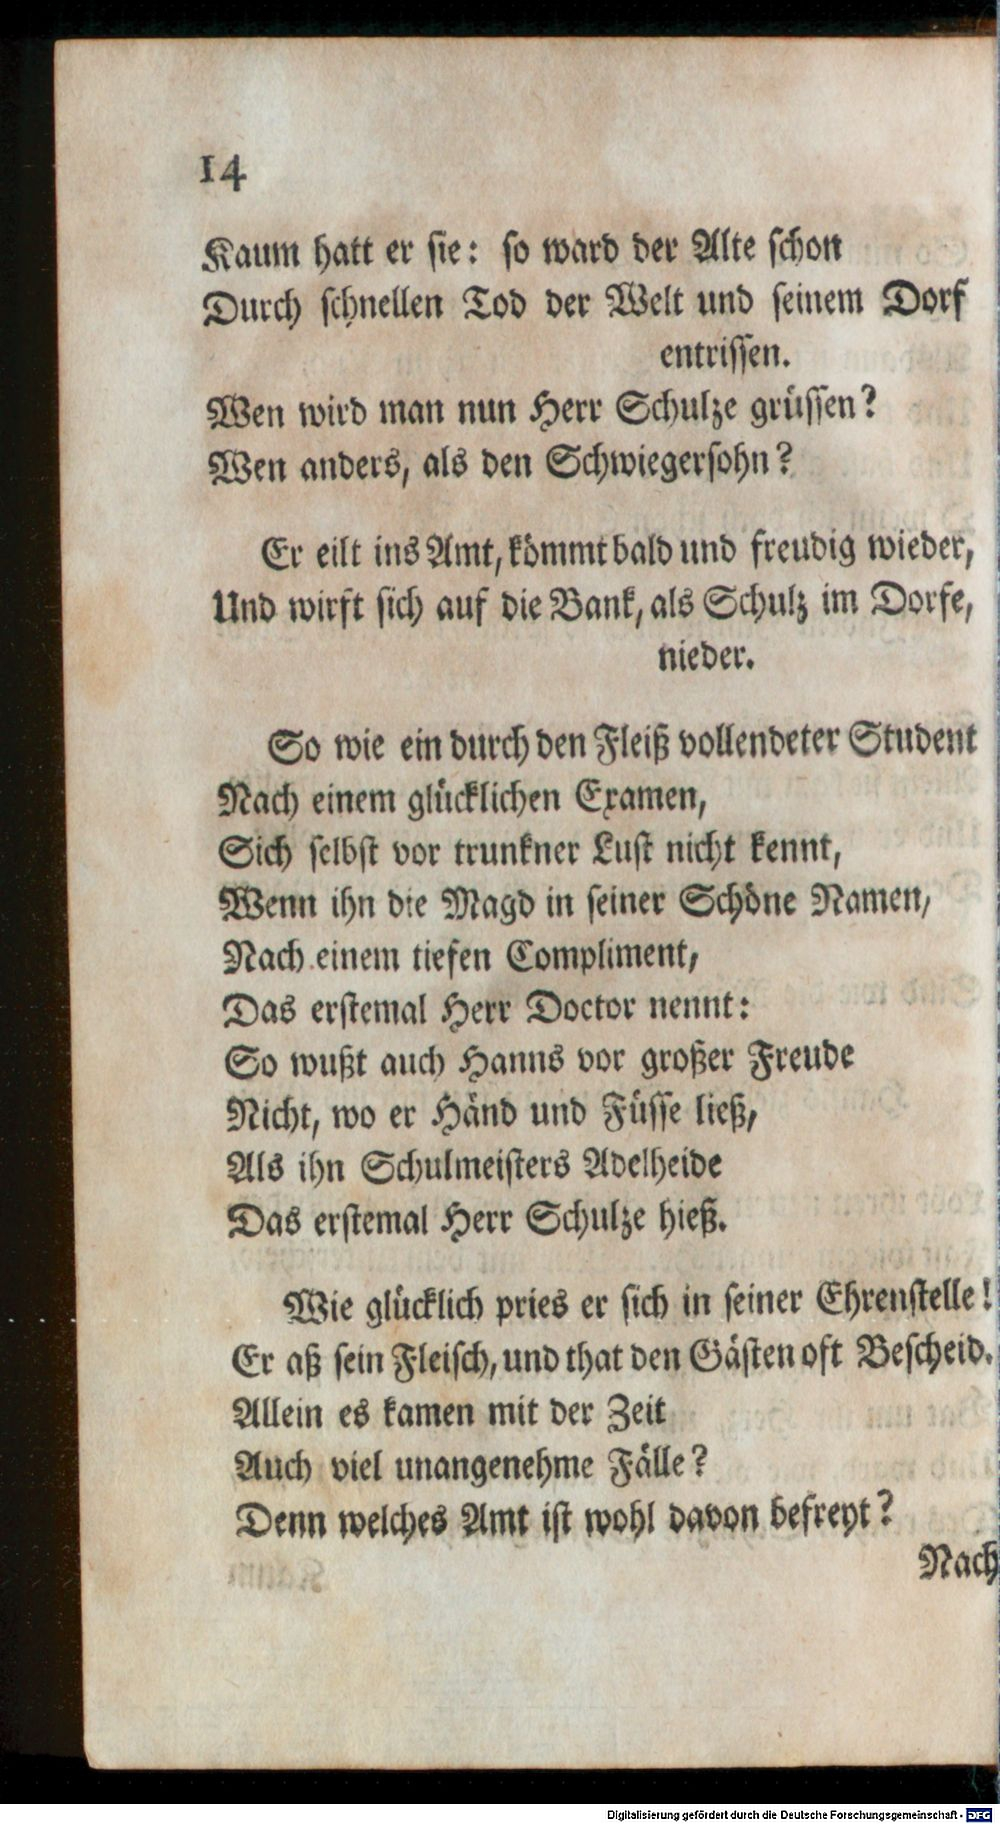 14
Kaum hatt er sie: so ward der Alte schon
Durch schnellen Tod der Welt und seinem Dorf
entrissen.
Wen wird man nun Herr Schulze grüssen?
Wen anders, als den Schwiegersohn?
Er eilt ins Amt, kömmt bald und freudig wieder,
Und wirft sich auf die Bank, als Schulz im Dorfe,
nieder.
So wie ein durch den Fleiß vollendeter Student
Nach einem glücklichen Examen,
Sich selbst vor trunkner Lust nicht kennt,
Wenn ihn die Magd in seiner Schöne Namen,
Nach einem tiefen Compliment,
Das erstemal Herr Doctor nennt:
So wußt auch Hanns vor großer Freude
Nicht, wo er Händ und Füsse ließ,
Als ihn Schulmeisters Adelheide
Das erstemal Herr Schulze hieß.
Wie glücklich pries er sich in seiner Ehrenstelle!
Er aß sein Fleisch, und that den Gästen oft Bescheid.
Allein es kamen mit der Zeit
Auch viel unangenehme Fälle?
Denn welches Amt ist wohl davon befreyt?
Nach
Digitalisierung gefördert durch die Deutsche Forschungsgemeinschaft - DFG